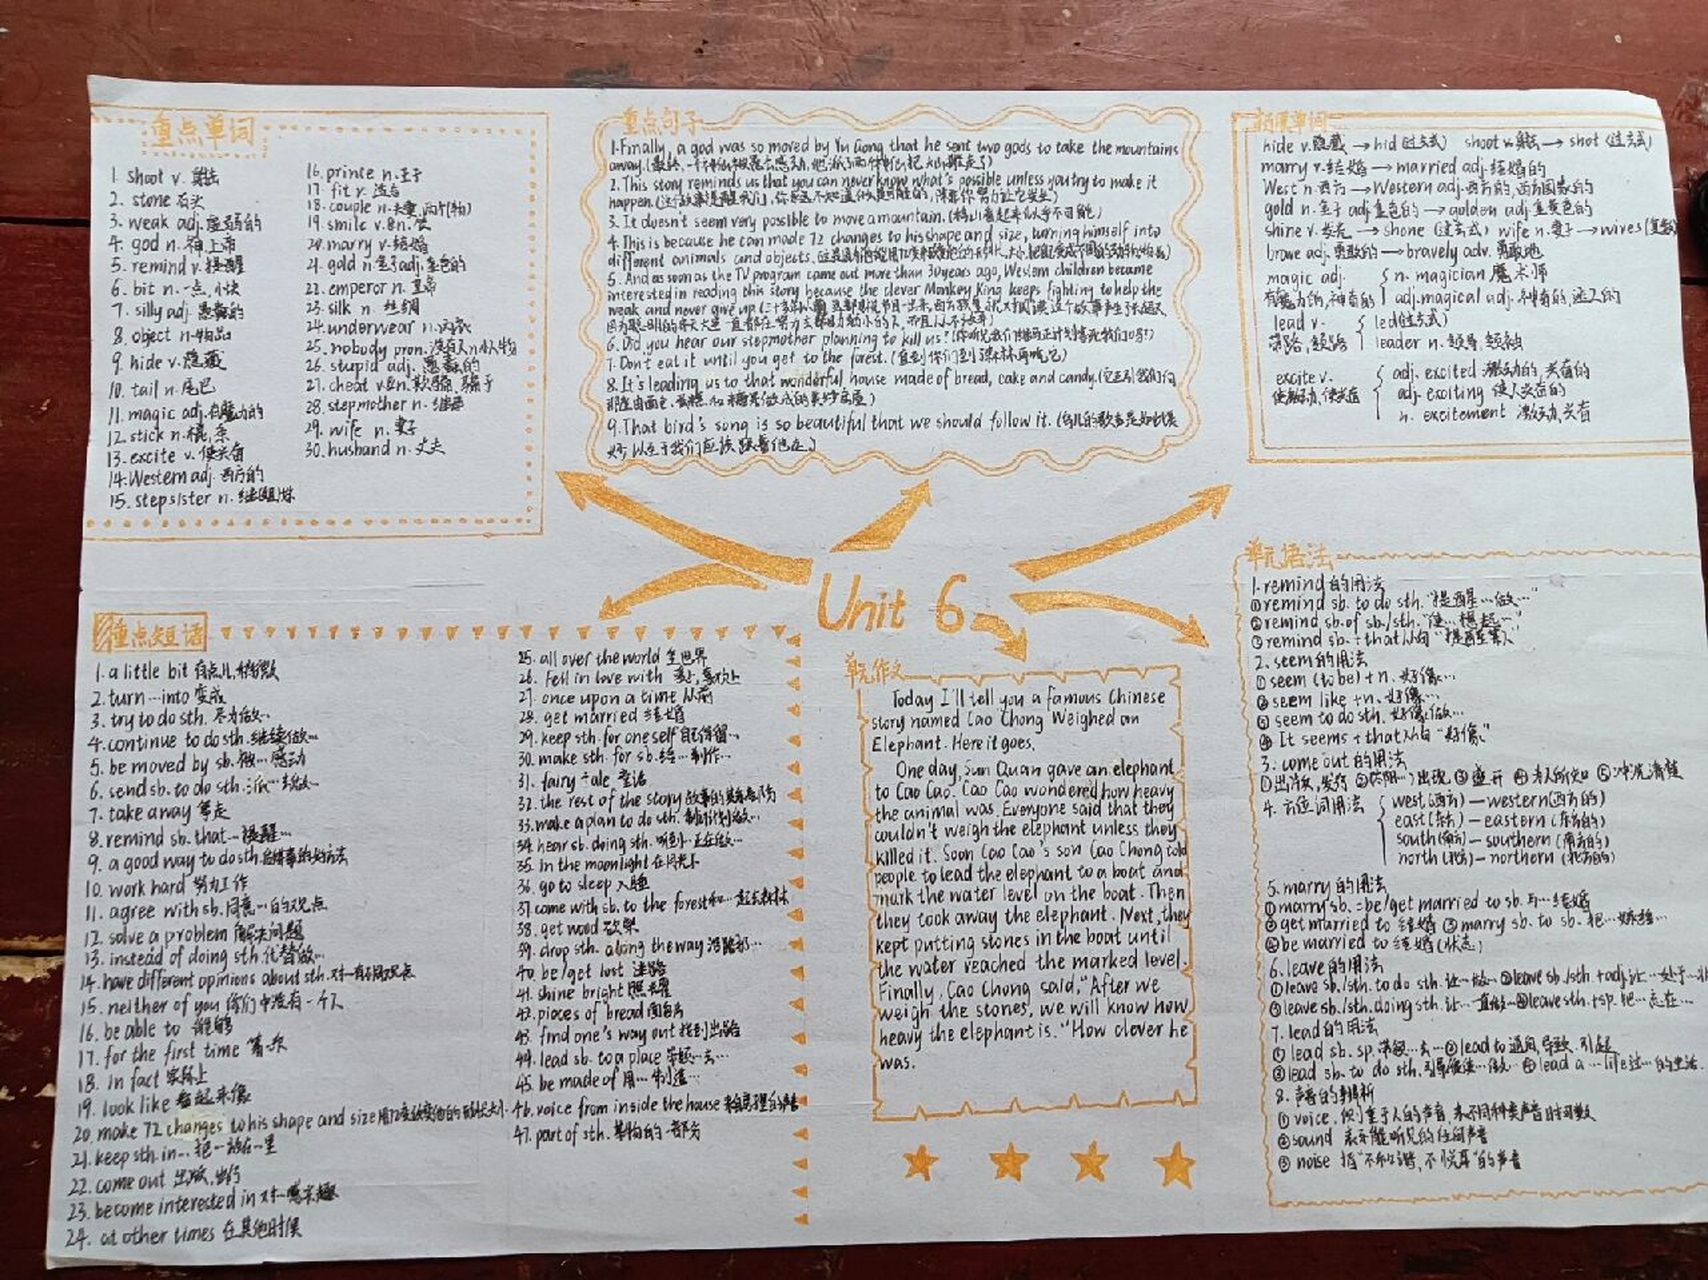 重点单词
1. shoot v. 射击
2. stone 石头
3. weak adj. 虚弱的
4. god n. 神,上帝
5. remind v. 提醒
6. bit n. 一点,小块
7. silly adj. 愚蠢的
8. object n. 物品
9. hide v. 隐藏
10. tail n. 尾巴
11. magic adj. 有魔力的
12. stick n. 棍,条
13. excite v. 使兴奋
14. Western adj. 西方的
15. stepsister n. 继姐妹
16. prince n. 王子
17. fit v. 适合
18. couple n. 夫妻,两个(物)
19. smile v.&n. 笑
20. marry v. 结婚
21. gold n. 金子 adj. 金色的
22. emperor n. 皇帝
23. silk n. 丝绸
24. underwear n. 内衣
25. nobody pron. 没有人 n. 小人物
26. stupid adj. 愚蠢的
27. cheat v.&n. 欺骗,骗子
28. stepmother n. 继母
29. wife n. 妻子
30. husband n. 丈夫
重点句子
1. Finally, a god was so moved by Yu Gong that he sent two gods to take the mountains
away.
2. This story reminds us that you can never know what's possible unless you try to make it
happen.
3. It doesn't seem very possible to move a mountain.
4. This is because he can made 72 changes to his shape and size, turning himself into
different animals and objects.
5. And as soon as the TV program came out more than 30 years ago, Western children became
interested in reading this story because the clever Monkey King keeps fighting to help the
weak and never give up
6. Did you hear our stepmother planning to kill us?
7. Don't eat it until you get to the forest.
8. It's leading us to that wonderful house made of bread, cake and candy.
9. That bird's song is so beautiful that we should follow it.
好,以至于我们应该跟着他走。)
拓展单词
hide v. 隐藏 → hid (过去式) shoot v. 射击 → shot (过去式)
marry v. 结婚 → married adj. 结婚的
West n. 西方 → Western adj. 西方的,西方国家的
gold n. 金子 adj. 金色的 → golden adj. 金黄色的
shine v. 发光 → shone (过去式) wife n. 妻子 → wives (复数)
brave adj. 勇敢的 → bravely adv. 勇敢地
magic adj. { n. magician 魔术师
有魔力的,神奇的 adj. magical adj. 神奇的,迷人的
lead v. { led (过去式)
带路,领路 leader n. 领导,领袖
excite v. { adj. excited 激动的,兴奋的
使激动,使兴奋 adj. exciting 使人兴奋的
n. excitement 激动,兴奋
Unit 6
重点短语
1. a little bit 有点儿,稍微
2. turn…into 变成
3. try to do sth. 尽力做…
4. continue to do sth. 继续做…
5. be moved by sb. 被…感动
6. send sb. to do sth. 派…去做…
7. take away 拿走
8. remind sb. that… 提醒…
9. a good way to do sth. 做某事的好方法
10. work hard 努力工作
11. agree with sb. 同意…的观点
12. solve a problem 解决问题
13. instead of doing sth. 代替做…
14. have different opinions about sth. 对…有不同观点
15. neither of you 你们中没有一个人
16. be able to 能够
17. for the first time 第一次
18. in fact 实际上
19. look like 看起来像
20. make 72 changes to his shape and size
21. keep sth. in… 把…放在…里
22. come out 出版,出行
23. become interested in 对…感兴趣
24. at other times 在其他时候
25. all over the world 全世界
26. fell in love with 爱上,喜欢上
27. once upon a time 从前
28. get married 结婚
29. keep sth. for oneself 自己保留…
30. make sth. for sb. 给…制作…
31. fairy tale 童话
32. the rest of the story 故事的其余部分
33. make a plan to do sth. 制定计划做…
34. hear sb. doing sth. 听到…正在做…
35. in the moonlight 在月光下
36. go to sleep 入睡
37. come with sb. to the forest 和…一起去森林
38. get wood 砍柴
39. drop sth. along the way 沿路扔…
40. be/get lost 迷路
41. shine bright 照耀
42. pieces of bread 面包片
43. find one's way out 找到出路
44. lead sb. to a place 带领…去…
45. be made of 用…制造…
46. voice from inside the house 来自房里的声音
47. part of sth. 某物的一部分
单元作文
Today I'll tell you a famous Chinese
story named Cao Chong Weighed an
Elephant. Here it goes.
One day, Sun Quan gave an elephant
to Cao Cao. Cao Cao wondered how heavy
the animal was. Everyone said that they
couldn't weigh the elephant unless they
killed it. Soon Cao Cao's son Cao Chong told
people to lead the elephant to a boat and
mark the water level on the boat. Then
they took away the elephant. Next, they
kept putting stones in the boat until
the water reached the marked level.
Finally, Cao Chong said, "After we
weigh the stones, we will know how
heavy the elephant is." How clever he
was.
单元语法
1. remind 的用法
① remind sb. to do sth. "提醒…做…"
② remind sb. of sb./sth. "使…想起…"
③ remind sb. + that 从句 "提醒某人"
2. seem 的用法
① seem (to be) + n. 好像…
② seem like + n. 好像…
③ seem to do sth. 好像做…
④ It seems + that 从句 "好像"
3. come out 的用法
① 出版,发行 出现 ③ 盛开 ④ 为人所知 ⑤ 冲洗清楚
4. 方位词用法 { west (西方) — western (西方的)
east (东方) — eastern (东方的)
south (南方) — southern (南方的)
north (北方) — northern (北方的)
5. marry 的用法
① marry sb. = be/get married to sb. 与…结婚
② get married to 结婚 ③ marry sb. to sb. 把…嫁给…
④ be married to 结婚 (状态)
6. leave 的用法
① leave sb./sth. to do sth. 让…做… ② leave sb./sth. + adj. 让…处于…
③ leave sb./sth. doing sth. 让…一直做… ④ leave sth. + sp. 把…忘在…
7. lead 的用法
① lead sb. sp. 带领…去… ② lead to 通向,导致,引起
③ lead sb. to do sth. 引导某人…做… ④ lead a … life 过…的生活.
8. 声音的辨析
① voice,
② sound 表示能听见的任何声音
③ noise 指"不和谐,不悦耳"的声音